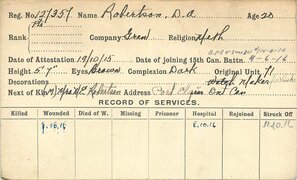 Reg. No. 127357 Name Robertson, D.A. Age 20
Rank Pte Company Gren Religion Meth
Date of Attestation 19/10/15 Date of joining 13th Can. Battn. 9-6-16
Height 5'.7" Eyes Brown Complexion Dark Original Unit 71
Decorations
Next of Kin Robertson Address Port Elgin Ont Can
RECORD OF SERVICES.
Killed Wounded Died of W. Missing Prisoner Hospital Rejoined Struck Off
8.10.16 8.10.16